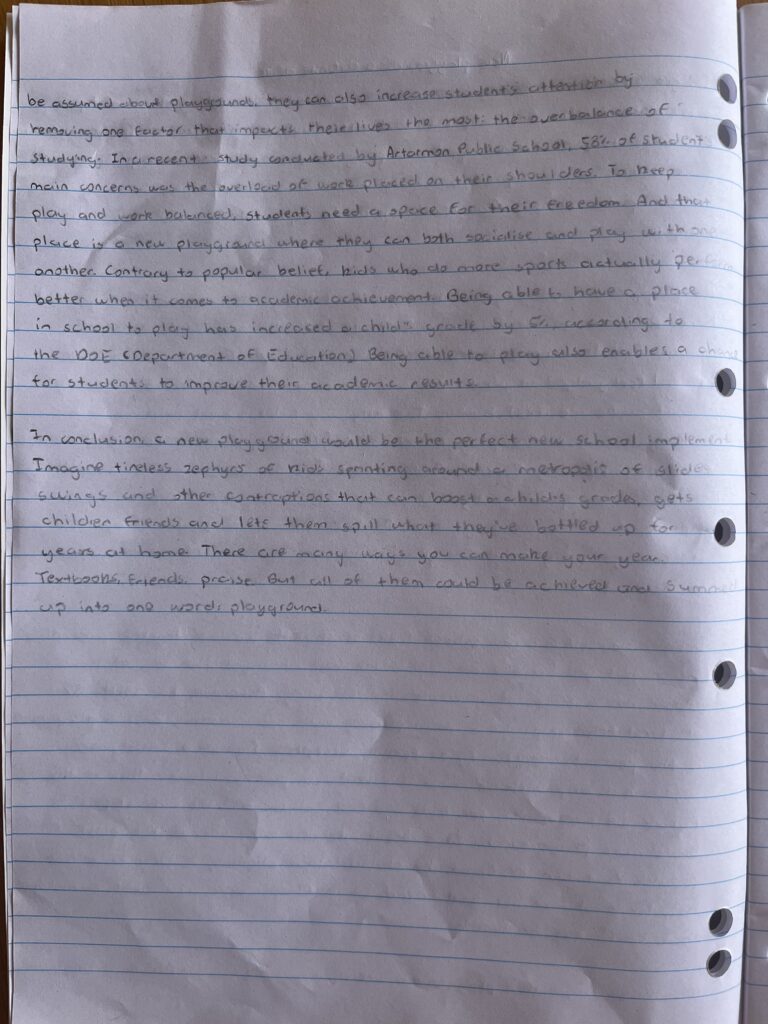 be assumed about playgrounds, they can also increase student's attention by
removing one factor that impacts there lives the most: the overbalance of
studying. In a recent study conducted by Artarmon Public School, 58% of student
main concerns was the overload of work placed on their shoulders. To keep
play and work balanced, students need a space for their freedom. And that
place is a new playground where they can both socialise and play with one
another. Contrary to popular belief, kids who do more sports actually perform
better when it comes to academic achievement. Being able to have a place
in school to play has increased a child's grade by 5%, according to
the DoE (Department of Education) Being able to play also enables a
for students to improve their academic results.
In conclusion, a new playground would be the perfect new school implement
Imagine timeless zephyrs of kids sprinting around a metropolis of slides
swings and other contraptions that can boost a child's grades, gets
children friends and lets them spill what they've bottled up for
years at home. There are many ways you can make your year.
Textbooks, friends, praise. But all of them could be achieved and summed
up into one word: playground.